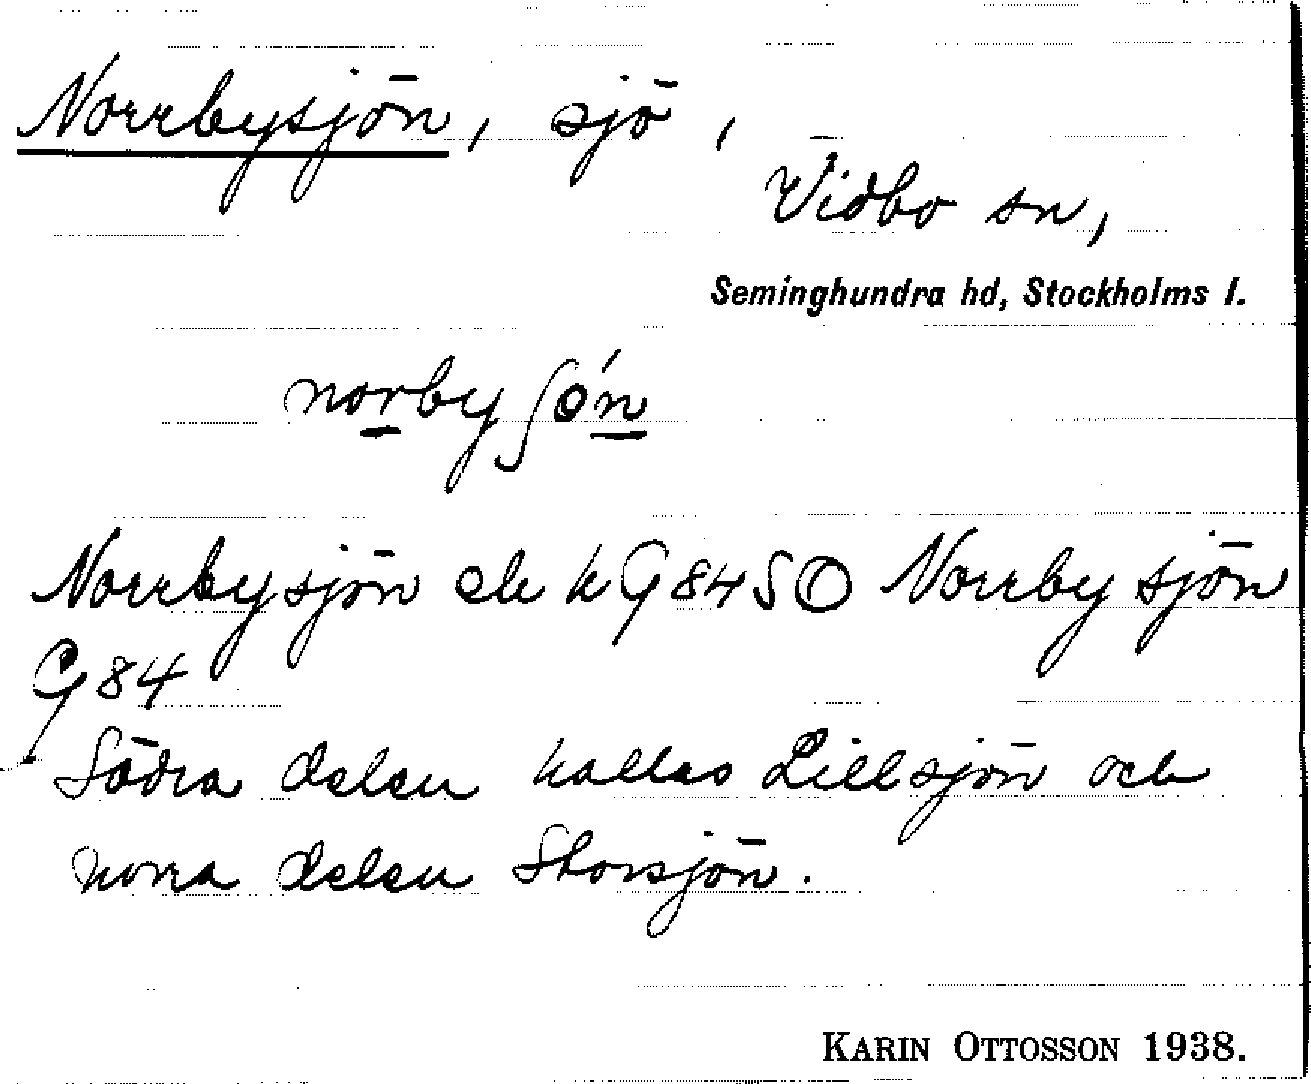 Norrbysjön, sjö,
Vidbo sn,
Seminghundra hd, Stockholms l.
norbyʃǿn
Norrbysjön ek h G 84 SO Norrby sjön
G 84
Södra delen kallas Lillsjön och
norra delen Storsjön.
KARIN OTTOSSON 1938.